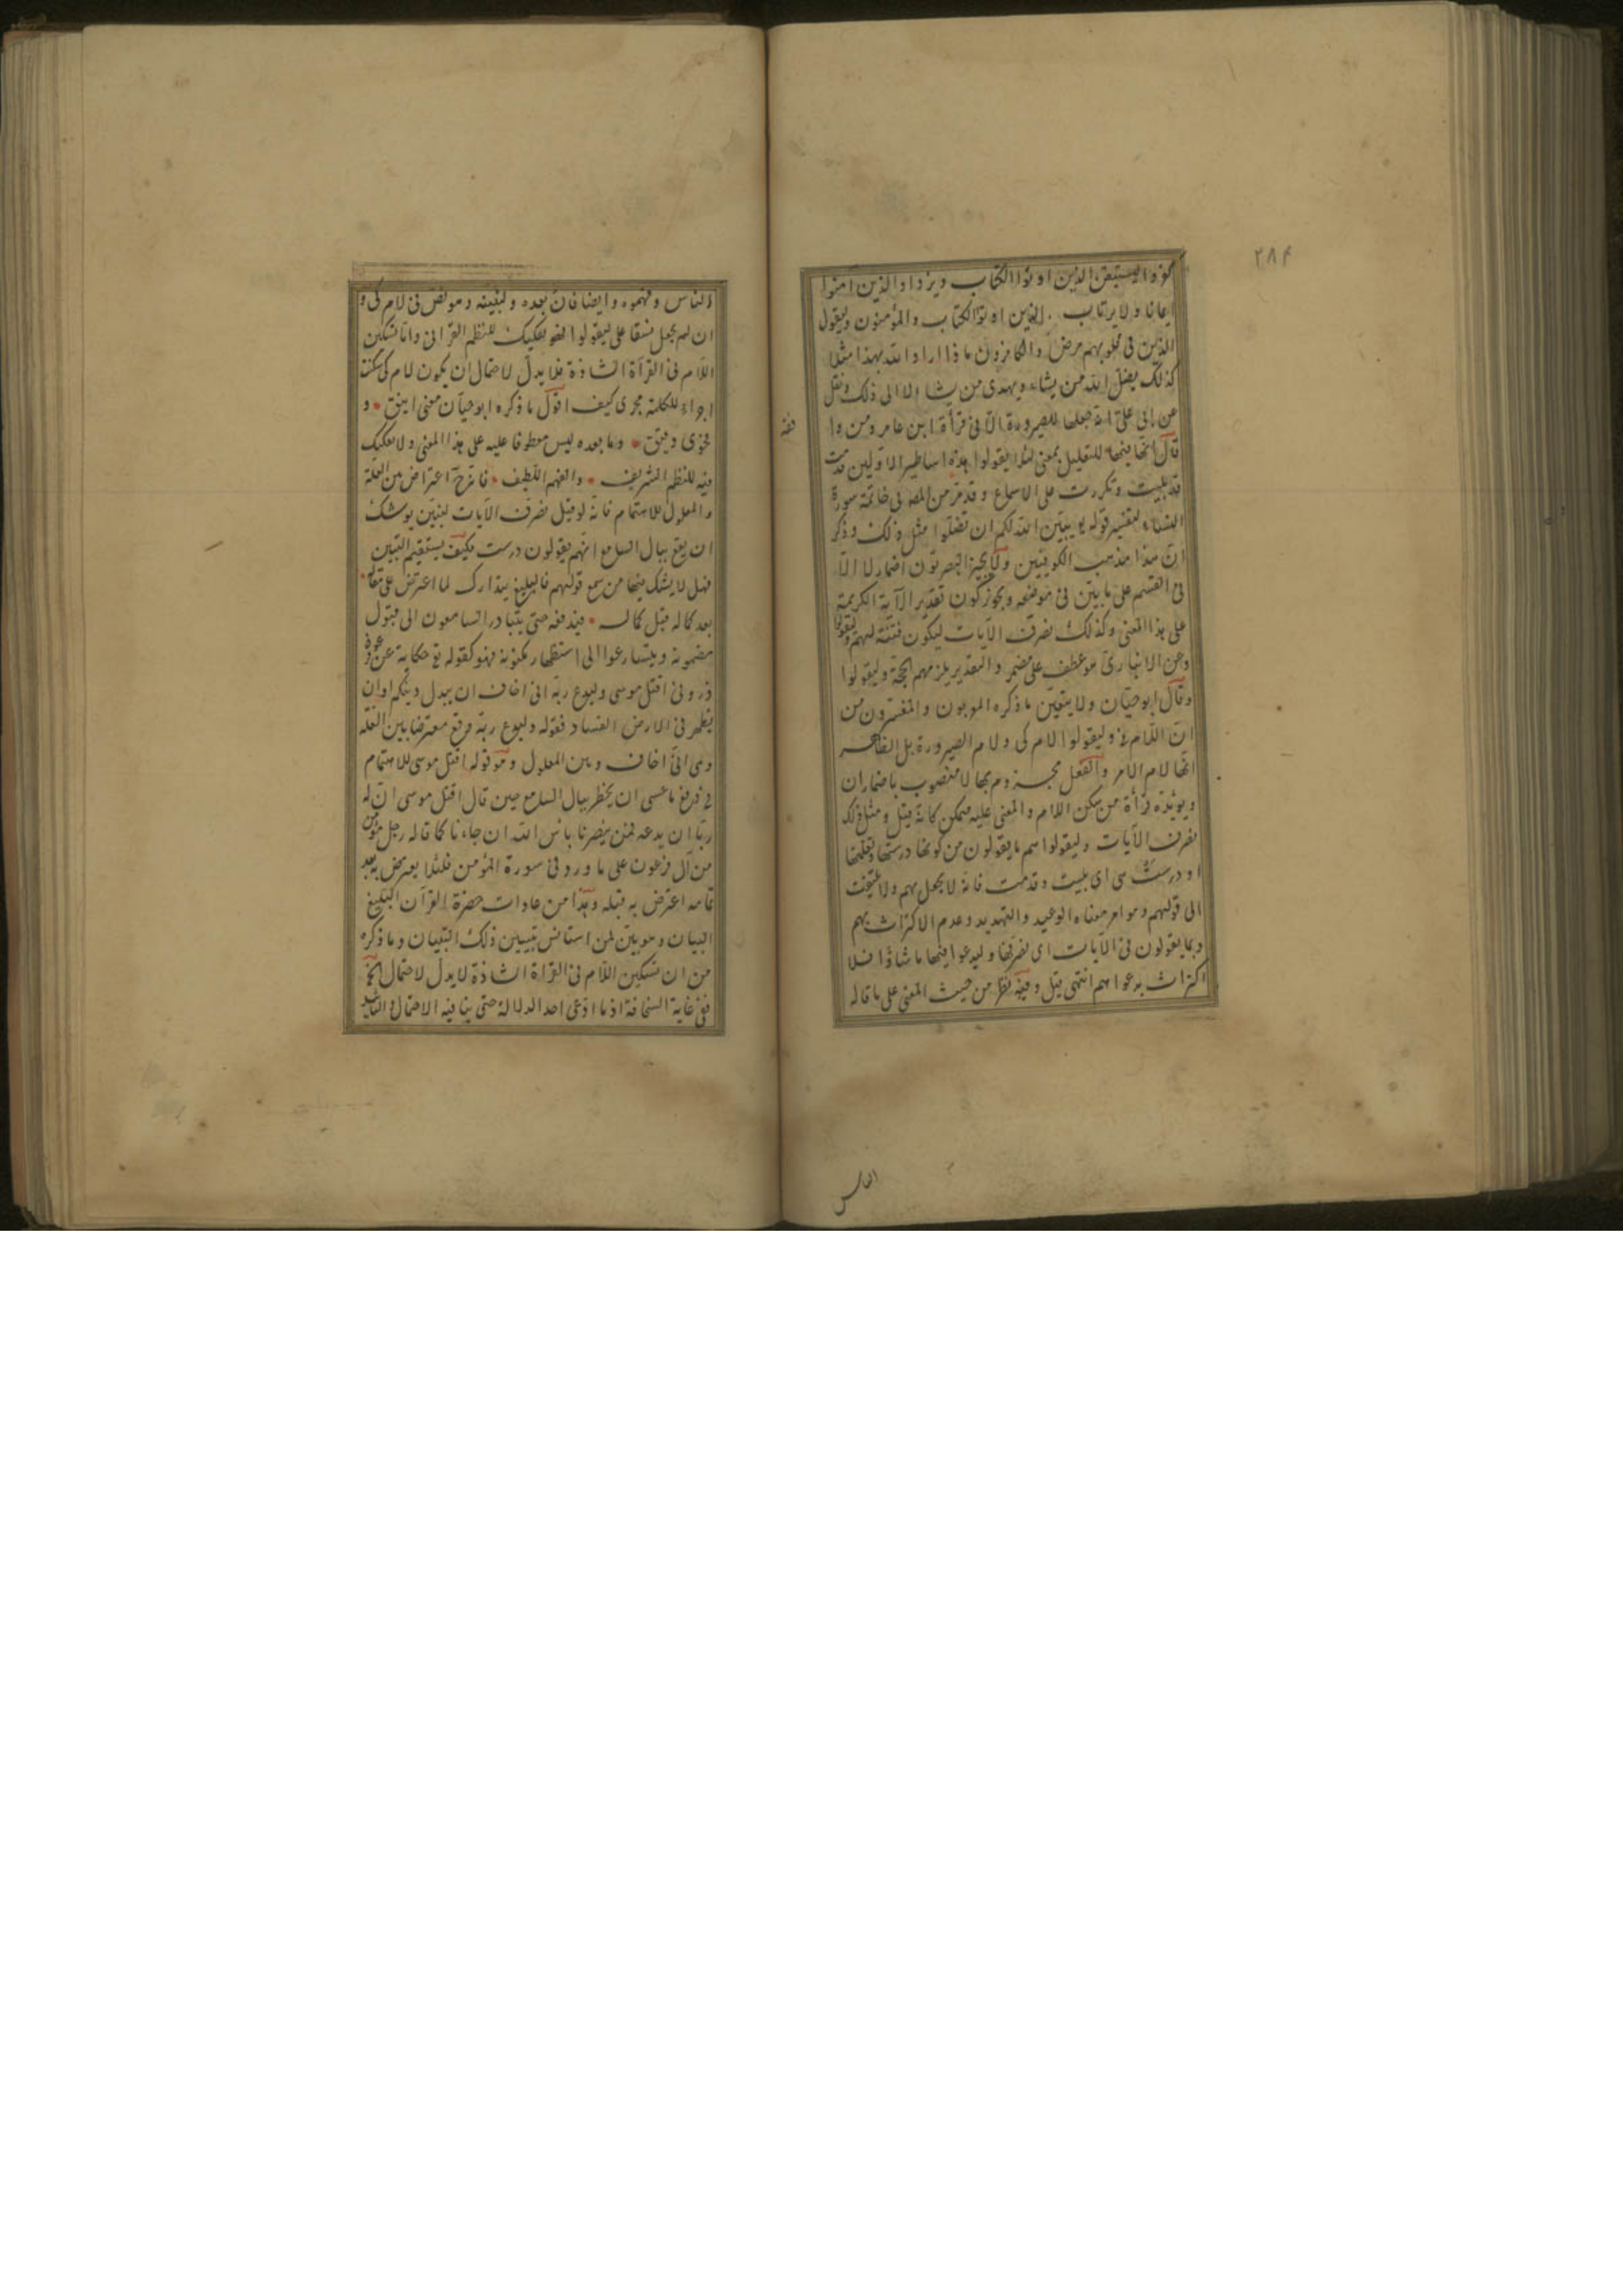 ٢٨٤
كفروا ليستيقن الذين اوتوا الكتاب ويزداد الذين آمنوا
ايمانا ولا يرتاب الذين اوتوا الكتاب والمؤمنون وليقول
الذين في قلوبهم مرض والكافرون ماذا اراد الله بهذا مثلا
كذلك يضل الله من يشاء ويهدى من يشا الا الى ذلك ونقل
عن ابى على انه جعلها للصيرورة الا فى قرأة ابن عامر ومن وا
فقه
قال انها فيها للتعليل بمعنى لئلا يقولوا هذه اساطير الاولين قدمت
قد بليت وتكررت على الاسماع وقد مر من المصـ فى خاتمة سورة
النساء لتفسير قوله تع يبين الله لكم ان تضلوا مثل ذلك وذكر
ان هذا مذهب الكوفيين ولا يجيز البصريون اضمار لا الا
فى القسم على ما بين فى موضعه ويجوز كون تقدير الآية الكريمة
على هذا المعنى وكذلك نصرف الآيات ليكون فتنة لهم وليقولوا
وعن الانبارى هو عطف على مضمر والتقدير يلزمهم الحجة وليقولوا
وقال ابو حيان ولا يتعين ما ذكره المعربون والمفسرون من
ان اللام فى وليقولوا لام كى ولام الصيرورة بل الظاهر
انها لام الامر والفعل مجزوم بها لا منصوب باضمار ان
ويؤيده قرأة من سكن اللام والمعنى عليه متمكن كانه قيل ومثل ذلك
نصرف الآيات وليقولوا هم ما يقولون من كونها درستها وتعلمتها
او درست هى اى بليت وقدمت فانه لا يحفل بهم ولا يلتفت
الى قولهم وهو امر معناه الوعيد والتهديد وعدم الاكتراث بهم
وبما يقولون فى الآيات اى نصرفها وليدعوا فيها ما شاؤا فلا
اكتراث بدعواهم انتهى قيل وفيه نظر من حيث المعنى على ما قاله
الناس
الناس وفهموه وايضا فان بعده ولنبينه وهو نص فى لام كى و
ان لم يجعل نسقا على ليقولوا فهو تفكيك للنظم القرانى واما تسكين
اللام فى القرأة الشاذة فلا يدل لاحتمال ان يكون لام كى سكنت
اجراء للكلمة مجرى كيف اقول ما ذكره ابو حيان معنى انيق و
فحوى دقيق وما بعده ليس معطوفا عليه على هذا المعنى ولا تفكيك
فيه للنظم الشريف والفهم اللطيف فانه ح اعتراض من العلة
والمعلول للاهتمام فانه لو قيل نصرف الآيات لنبين يوشك
ان يقع ببال السامع انهم يقولون درست فكيف يستقيم التبين
فهل لا يشك فيها من سمع قولهم فالبليغ يتدارك لما اعترض على مقاله
بعد كماله قبل كماله فيدفعه حتى يتبادر السامعون الى قبول
مضمونه ويتسارعوا الى استظهار مكنونه فهو كقوله تع حكاية عن فرعون
ذرونى اقتل موسى وليدع ربه انى اخاف ان يبدل دينكم او ان
يظهر فى الارض الفساد فقوله وليدع ربه وقع معترضا بين العلة
وهى انى اخاف وبين المعلول وهو قوله اقتل موسى للاهتمام
فى دفع ما عسى ان يخطر ببال السامع حين قال اقتل موسى ان له
ربا ان يدعه فمن ينصرنا من بأس الله ان جاءنا كما قاله رجل مؤمن
من آل فرعون على ما ورد فى سورة المؤمن فلئلا يعترض به بعد
تمامه اعترض به قبله وهذا من عادات حضرة القرآن البليغ
البيان وهو بين لمن استأنس بتبيين ذلك التبيان وما ذكره
من ان تسكين اللام فى القراة الشاذة لا يدل لاحتمال الخ
ففى غاية السخافة اذ ما ادعى احد الدلالة حتى ينافيه الاحتمال والتأييد